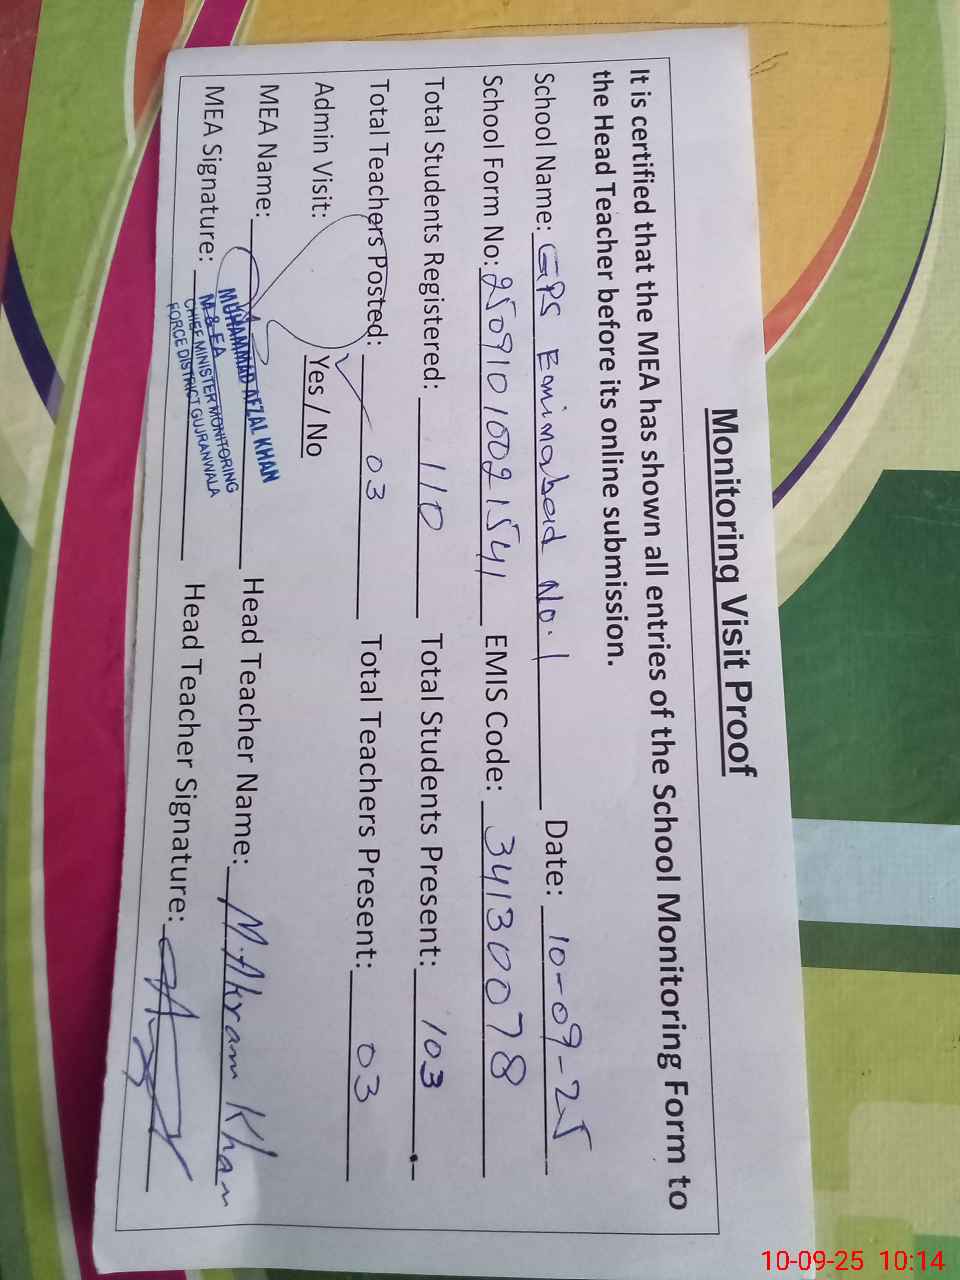 Monitoring Visit Proof
It is certified that the MEA has shown all entries of the School Monitoring Form to
the Head Teacher before its online submission.
School Name: GPS Eminabad No. 1 Date: 10-09-25
School Form No: 25091010021541 EMIS Code: 34130078
Total Students Registered: 110 Total Students Present: 103
Total Teachers Posted: 03 Total Teachers Present: 03
Admin Visit: Yes / No
MEA Name: Head Teacher Name: M. Akram Khan
MEA Signature: Head Teacher Signature:
MUHAMMAD AFZAL KHAN
M & EA
CHIEF MINISTER MONITORING
FORCE DISTRICT GUJRANWALA
10-09-25 10:14